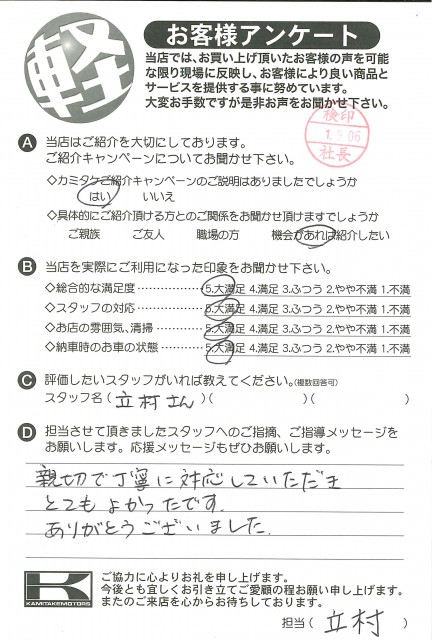 軽
お客様アンケート
当店では、お買い上げ頂いたお客様の声を可能
な限り現場に反映し、お客様により良い商品と
サービスを提供する事に努めています。
大変お手数ですが是非お声をお聞かせ下さい。
検印
1.9.06
社長
A 当店はご紹介を大切にしております。
ご紹介キャンペーンについてお聞かせ下さい。
◇カミタケご紹介キャンペーンのご説明はありましたでしょうか
はい いいえ
◇具体的にご紹介頂ける方とのご関係をお聞かせ頂けますでしょうか
ご親族 ご友人 職場の方 機会があれば紹介したい
B 当店を実際にご利用になった印象をお聞かせ下さい。
◇総合的な満足度 5.大満足 4.満足 3.ふつう 2.やや不満 1.不満
◇スタッフの対応 5.大満足 4.満足 3.ふつう 2.やや不満 1.不満
◇お店の雰囲気、清掃 5.大満足 4.満足 3.ふつう 2.やや不満 1.不満
◇納車時のお車の状態 5.大満足 4.満足 3.ふつう 2.やや不満 1.不満
C 評価したいスタッフがいれば教えてください。(複数回答可)
スタッフ名(立村さん)( )( )
D 担当させて頂きましたスタッフへのご指摘、ご指導メッセージを
お願いします。応援メッセージもぜひお願いします。
親切で丁寧に対応していただき
とてもよかったです。
ありがとうございました。
K
KAMITAKEMOTORS
ご協力に心よりお礼を申し上げます。
今後とも宜しくお引き立てご愛顧の程お願い申し上げます。
またのご来店を心からお待ちしております。
担当(立村)